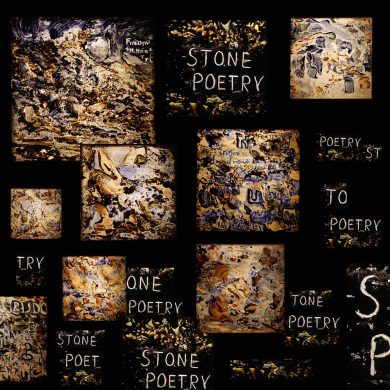 STONE
POETRY
POETRY
ST
TO
POETRY
TRY
ONE
POETRY
TONE
POETRY
STONE
POET
STONE
POETRY
S
P